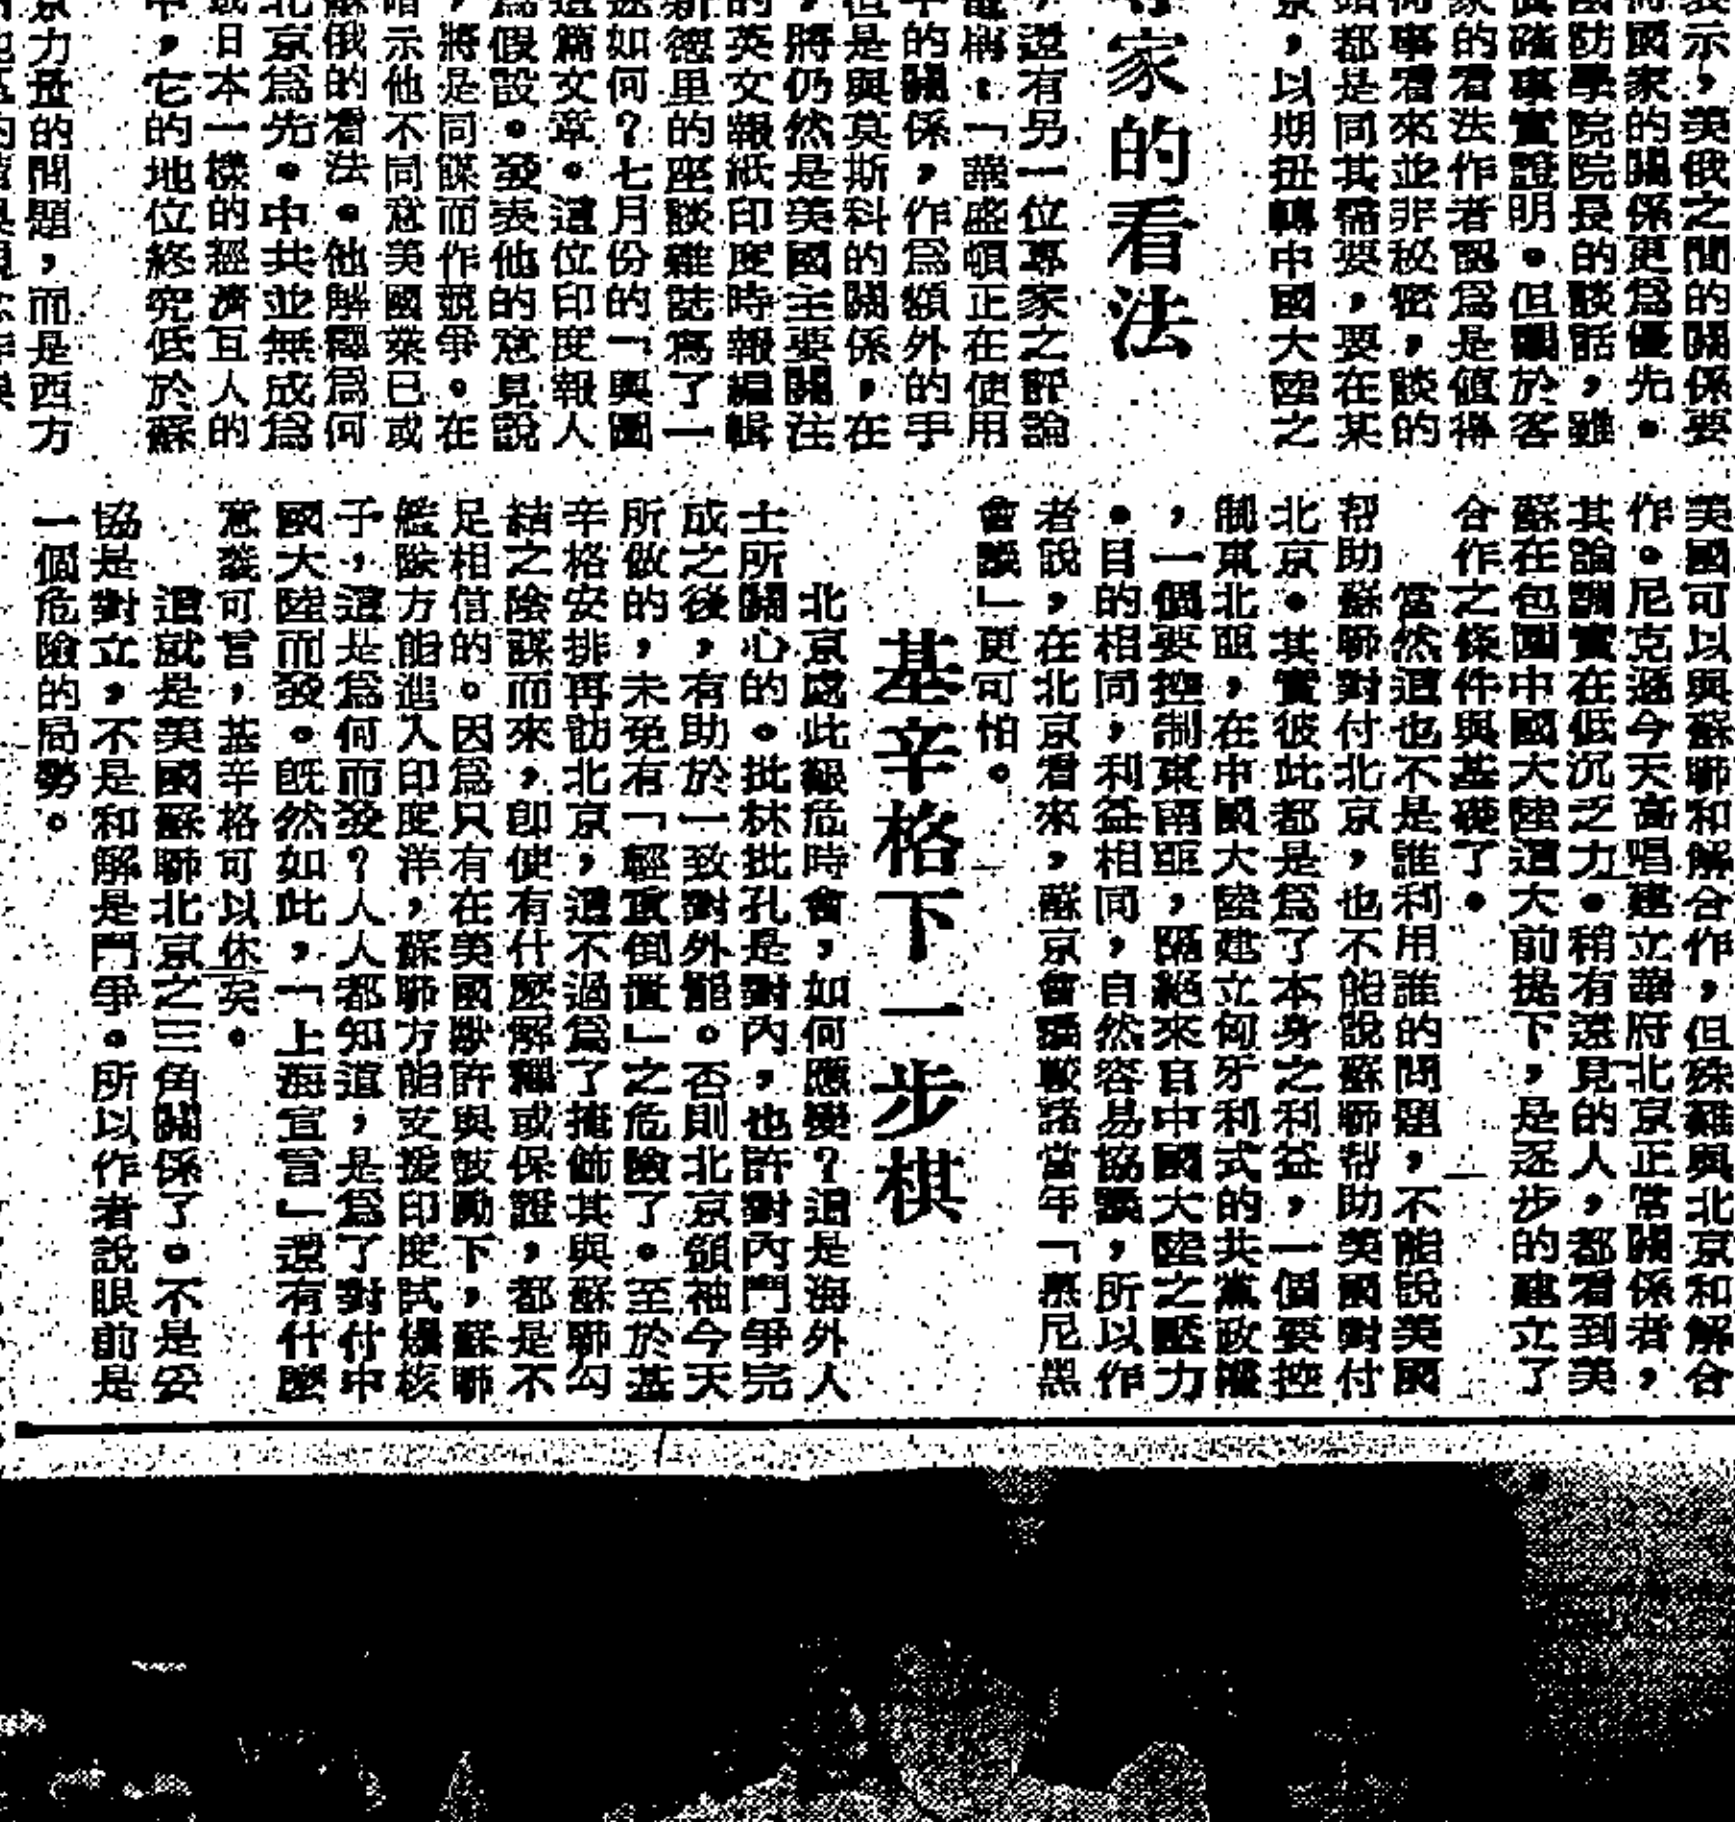 表示，美俄之間的關係要
將國家的關係更為優先。
國防學院院長的談話，雖
確事實證明。但關於客
家的看法作者認為是值得
何事看來並非秘密，談的
站都是同其需要，要在某
京，以期扭轉中國大陸之
家的看法
，還有另一位專家之評論
龍稱：「華盛頓正在使用
中的關係，作為額外的手
但是與莫斯科的關係，在
，將仍然是美國主要關注
的英文報紙印度時報編輯
新德里的座談雜誌寫了一
途如何？七月份的「輿圖
這篇文章。這位印度報人
為假設。發表他的意見說
，將是同謀而作競爭。在
暗示他不同意美國業已或
蘇俄的看法。他解釋為何
北京為先。中共並無成為
或日本一機的經濟互人的
中，它的地位終究低於蘇
京力量的問題，而是西方
美國可以與蘇聯和解合作，但殊難與北京和解合
作。尼克遜今天高唱建立華府北京正常關係者，
其論調實在低沉乏力。稍有遠見的人，都看到美
蘇在包圍中國大陸這大前提下，是逐步的建立了
合作之條件與基礎了。
當然這也不是誰利用誰的問題，不能說美國
帮助蘇聯對付北京，也不能說蘇聯帮助美國對付
北京。其實彼此都是為了本身之利益，一個要控
制東北亞，在中國大陸建立匈牙利式的共黨政權
，一個要控制東南亞，隔絕來自中國大陸之壓力
。目的相同，利益相同，自然容易協議，所以作
者說，在北京看來，蘇京會議較諸當年「慕尼黑
會議」更可怕。
基辛格下一步棋
北京處此艱危時會，如何應變？這是海外人
士所關心的。批林批孔是對內，也許對內鬥爭完
成之後，有助於一致對外罷。否則北京領袖今天
所做的，未免有「輕重倒置」之危險了。至於基
辛格安排再訪北京，這不過為了掩飾其與蘇聯勾
結之陰謀而來，卽使有什麼解釋或保證，都是不
足相信的。因為只有在美國默許與鼓勵下，蘇聯
艦隊方能進入印度洋，蘇聯方能支援印度試爆核
子，這是為何而發？人人都知道，是為了對付中
國大陸而發。旣然如此，「上海宣言」還有什麼
意義可言，基辛格可以休矣。
這就是美國蘇聯北京之三角關係了。不是妥
協是對立，不是和解是鬥爭。所以作者說眼前是
一個危險的局勢。